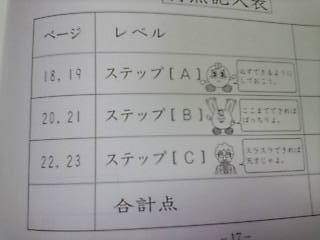 点記入表
ページ レベル
18,19 ステップ[A] 必ずできるように
しておこう。
20,21 ステップ[B] ここまでできれば
ばっちりよ。
22,23 ステップ[C] スラスラできれば
天才じゃよ。
合計点
-17-